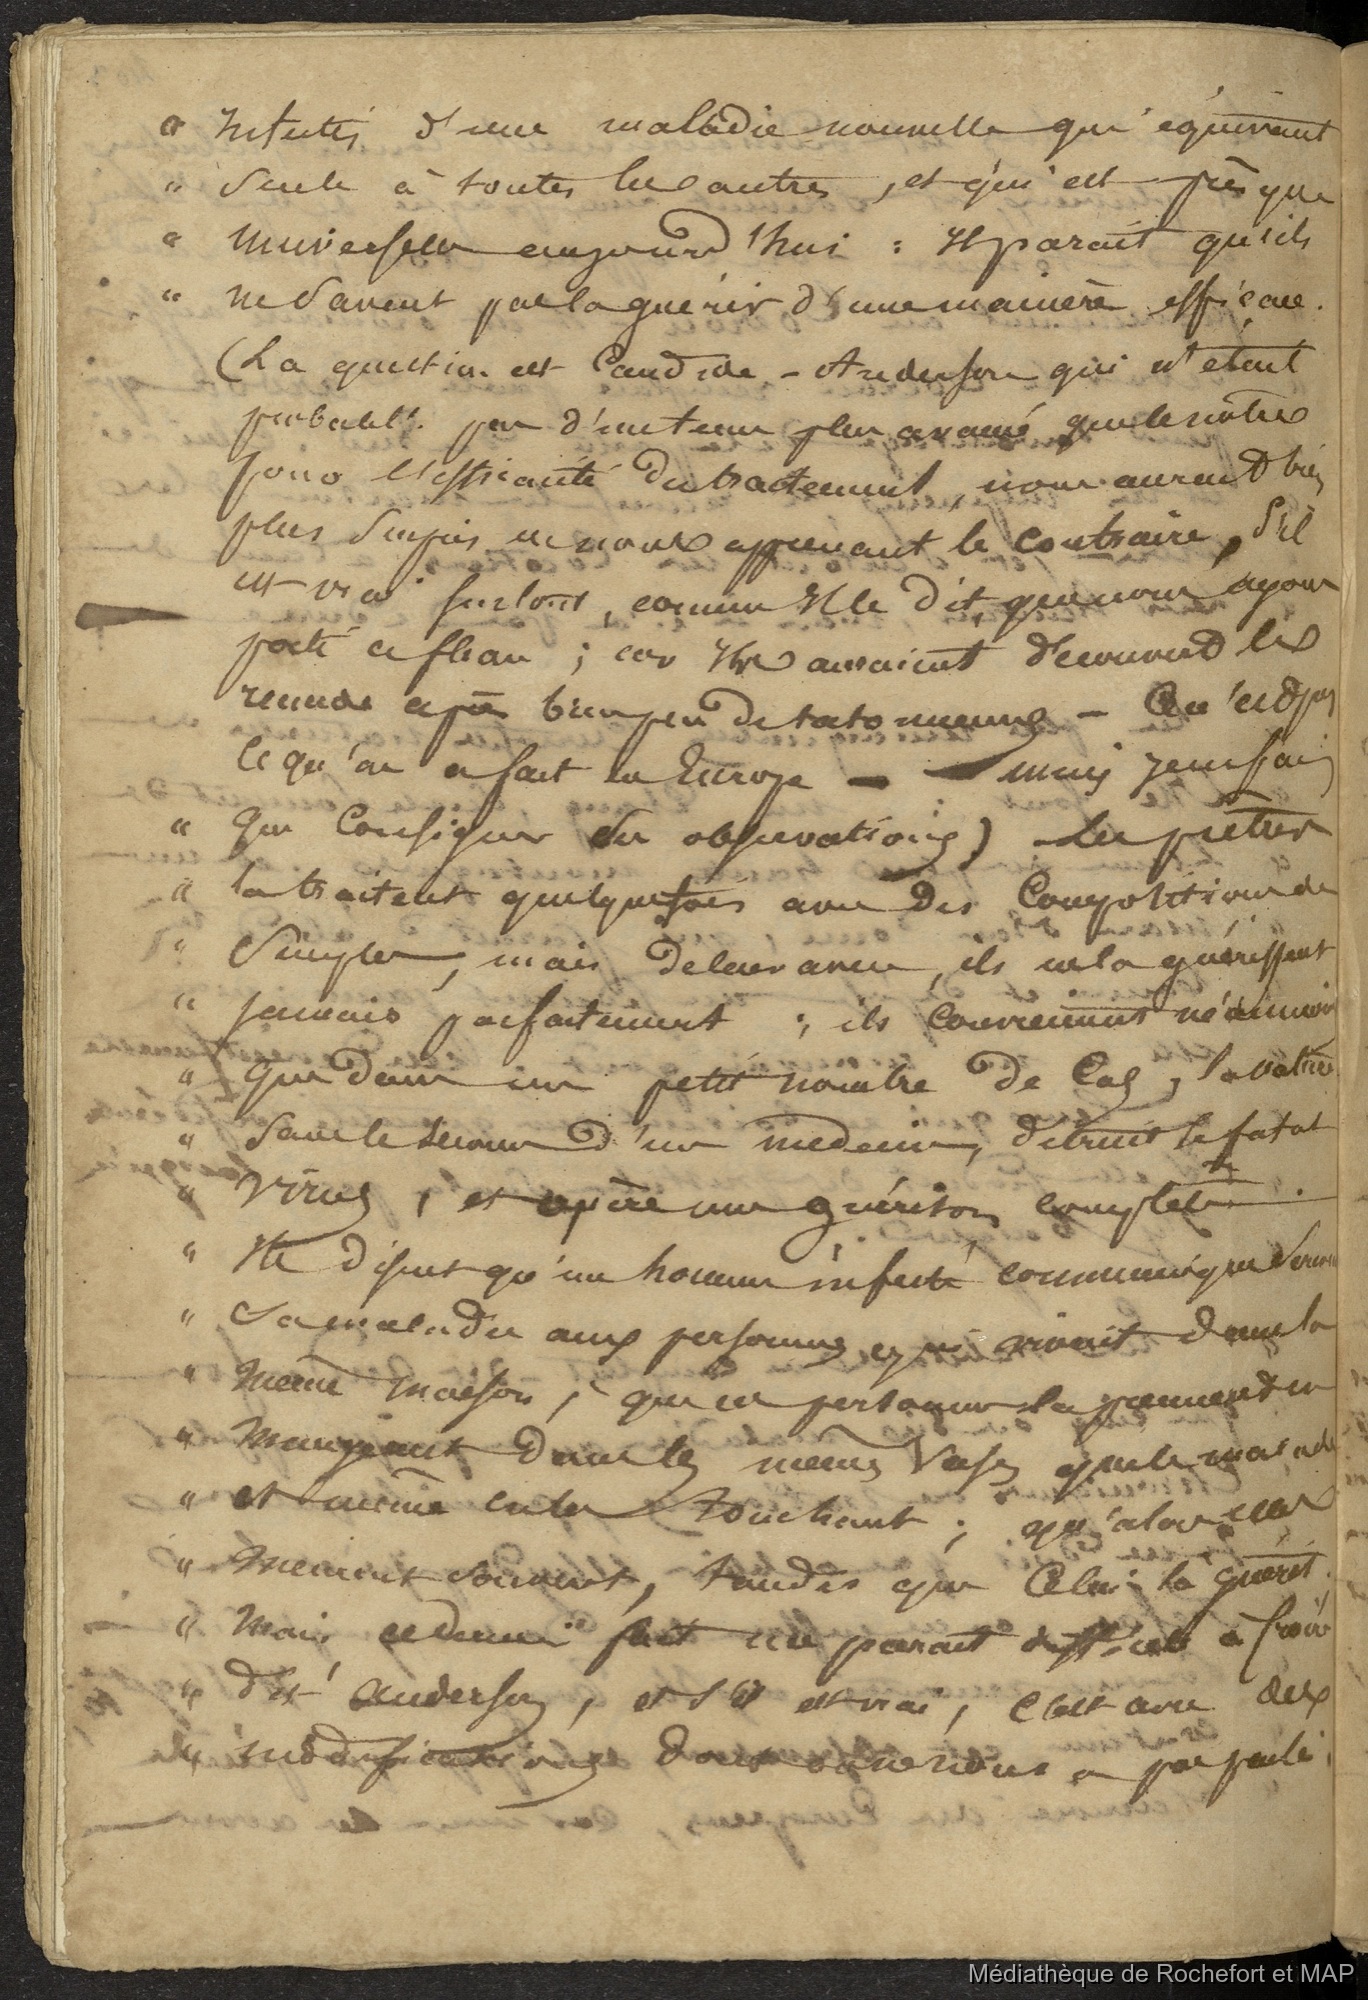 " Infectés d'une maladie nouvelle qui équivaut
" Seule à toutes les autres, et qui est presque
" universelle aujourd'hui : Il parait qu'ils
" ne savent pas la guérir d'une manière efficace.
(La question est Candide - Anderson qui n'étant
probablt. pas d'un tems plus avancé que le notre
pour l'efficacité du traitement, nous aurait bien
plus surpris en nous apprenant le contraire, S'il
est vrai surtout, comme Il le dit, que nous ayons
porté ce fleau ; car Ils auraient découvert le
remede après bien peu de tatonnemens - Qu'est pas
ce qu'on a fait en Europe - mais je ne fais
" que Consigner des observations) Les prêtres
" la traitent quelquefois avec des Compositions de
" Simples, mais de leur aveu, ils ne la guérissent
" jamais parfaitement ; ils conviennent néanmoins
" que dans un petit nombre de Cas, la nature
" Sans le secours d'un medecin, détruit le fatal
" Virus, et opère une guérison complète.
" Ils disent qu'un homme infecté communique souvent
" Sa maladie aux personnes qui vivent dans la
" même maison, que ces personnes la prennent en
" Mangeant dans les mêmes Vases que le malade
" et même en les touchant ; qu'alors elles
" Meurent souvent, tandis que Celui-là guérit.
" Mais ce dernier fait me parait difficile à croire
" dit Anderson, et s'il est vrai, c'est avec des
" modifications dont on ne nous a pas parlé.
Médiathèque de Rochefort et MAP